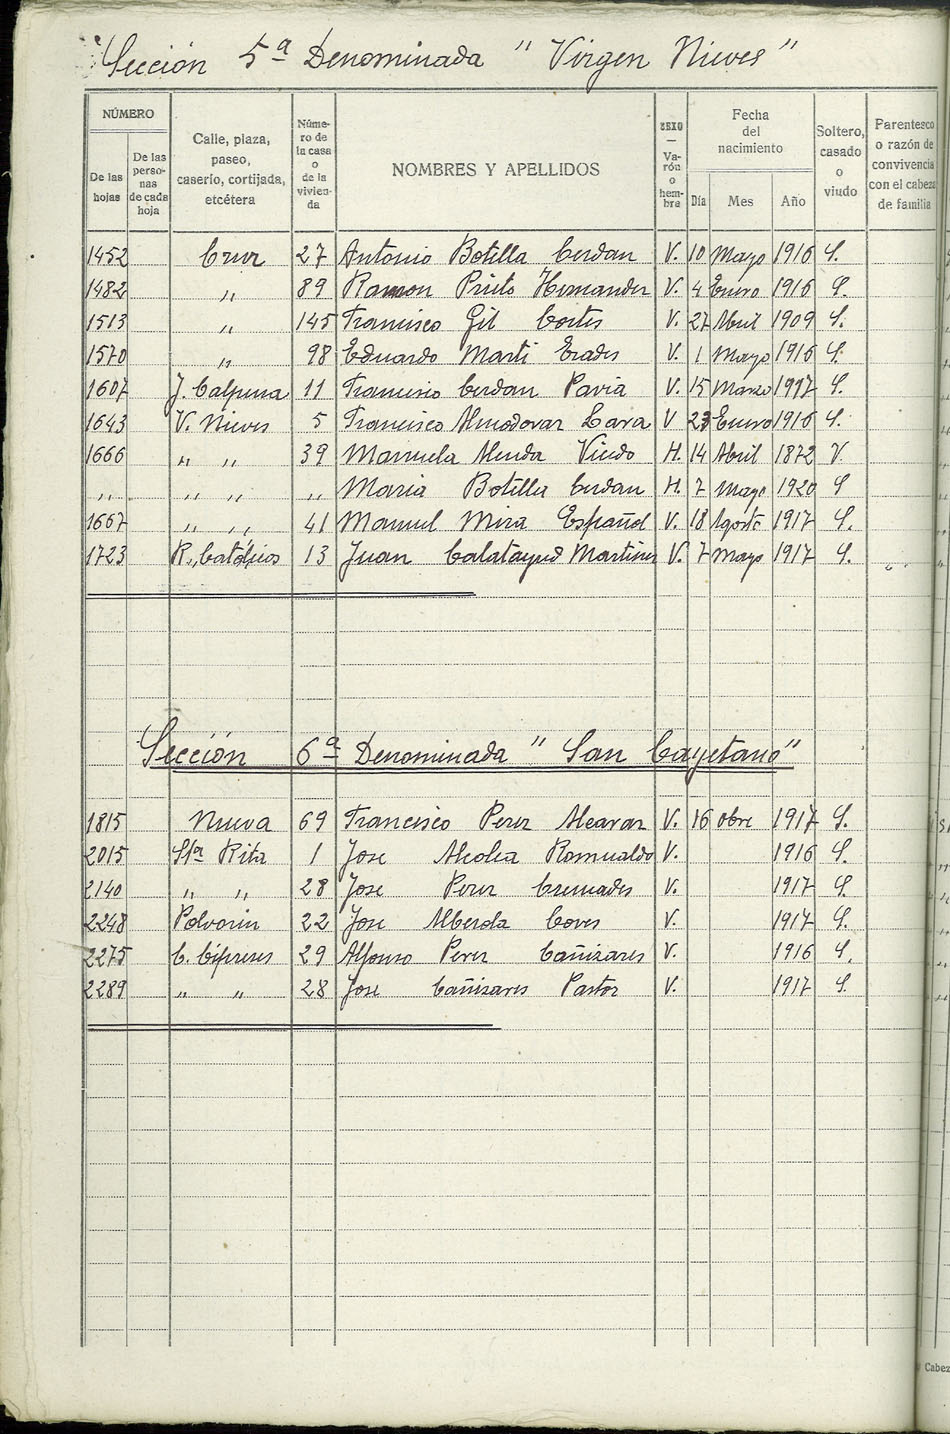 Sección 5ª Denominada "Virgen Nieves"
NÚMERO
De las hojas
De las personas de cada hoja
Calle, plaza, paseo, caserío, cortijada, etcétera
Número de la casa o de la vivienda
NOMBRES Y APELLIDOS
SEXO — Varón o hembra
Fecha del nacimiento
Día Mes Año
Soltero, casado o viudo
Parentesco o razón de convivencia con el cabeza de familia
1452 Cruz 27 Antonio Botella Cerdan V. 10 Mayo 1916 S.
1482 " 89 Ramon Prieto Hernandez V. 4 Enero 1916 S.
1513 " 145 Francisco Gil Cortes V. 27 Abril 1909 S.
1570 " 98 Eduardo Marti Erades V. 1 Mayo 1916 S.
1607 J. Calpena 11 Francisco Cerdan Pavia V. 15 Marzo 1917 S.
1643 V. Nieves 5 Francisco Almodovar Lara V 23 Enero 1916 S.
1666 " " 39 Manuela Viedo H. 14 Abril 1872 V.
" " " " Maria Botella Cerdan H. 7 Mayo 1920 S
1667 " " 41 Manuel Mira Español V. 18 Agosto 1917 S.
1723 R. Católicos 13 Juan Calatayud Martinez V. 7 Mayo 1917 S.
Sección 6ª Denominada "San Cayetano"
1815 Nueva 69 Francisco Perez Alcaraz V. 16 obre 1917 S.
2015 Sta Rita 1 Jose Alcolea Romualdo V. 1916 S.
2140 " " 28 Jose Perez Cremades V. 1917 S.
2248 Polvorin 22 Jose Alberola Coves V. 1917 S.
2275 C. Cipreses 29 Alfonso Perez Cañizares V. 1916 S.
2289 " " 28 Jose Cañizares Pastor V. 1917 S.
Cabez